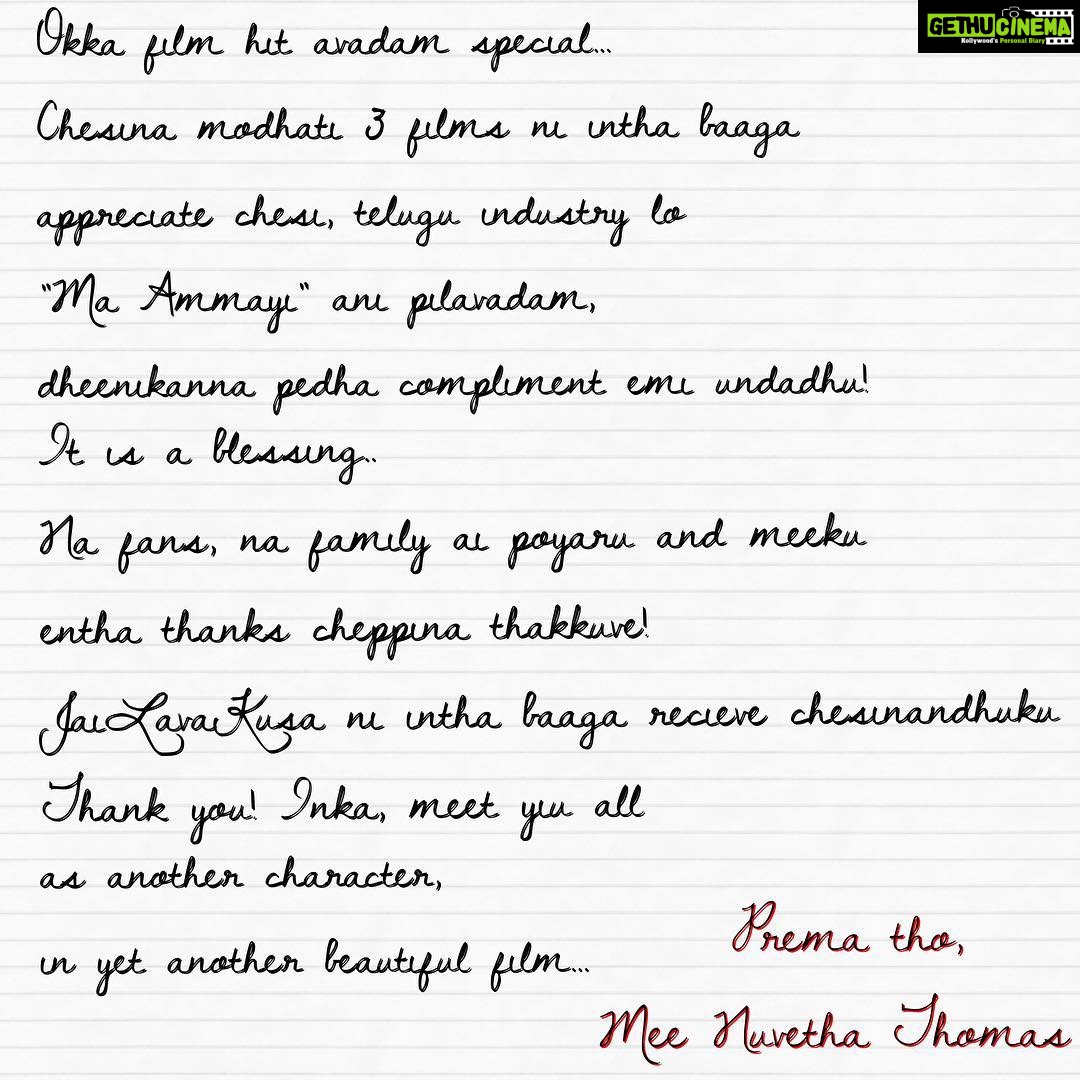 GETHUCINEMA
Kollywood's Personal Diary
Okka film hit avadam special...
Chesina modhati 3 films ni intha baaga
appreciate chesi, telugu industry lo
"Ma Ammayi" ani pilavadam,
dheenikanna pedha compliment emi undadhu!
It is a blessing..
Na fans, na family ai poyaru and meeku
entha thanks cheppina thakkuve!
JaiLavaKusa ni intha baaga recieve chesinandhuku
Thank you! Inka, meet yiu all
as another character,
in yet another beautiful film...
Prema tho,
Mee Nivetha Thomas